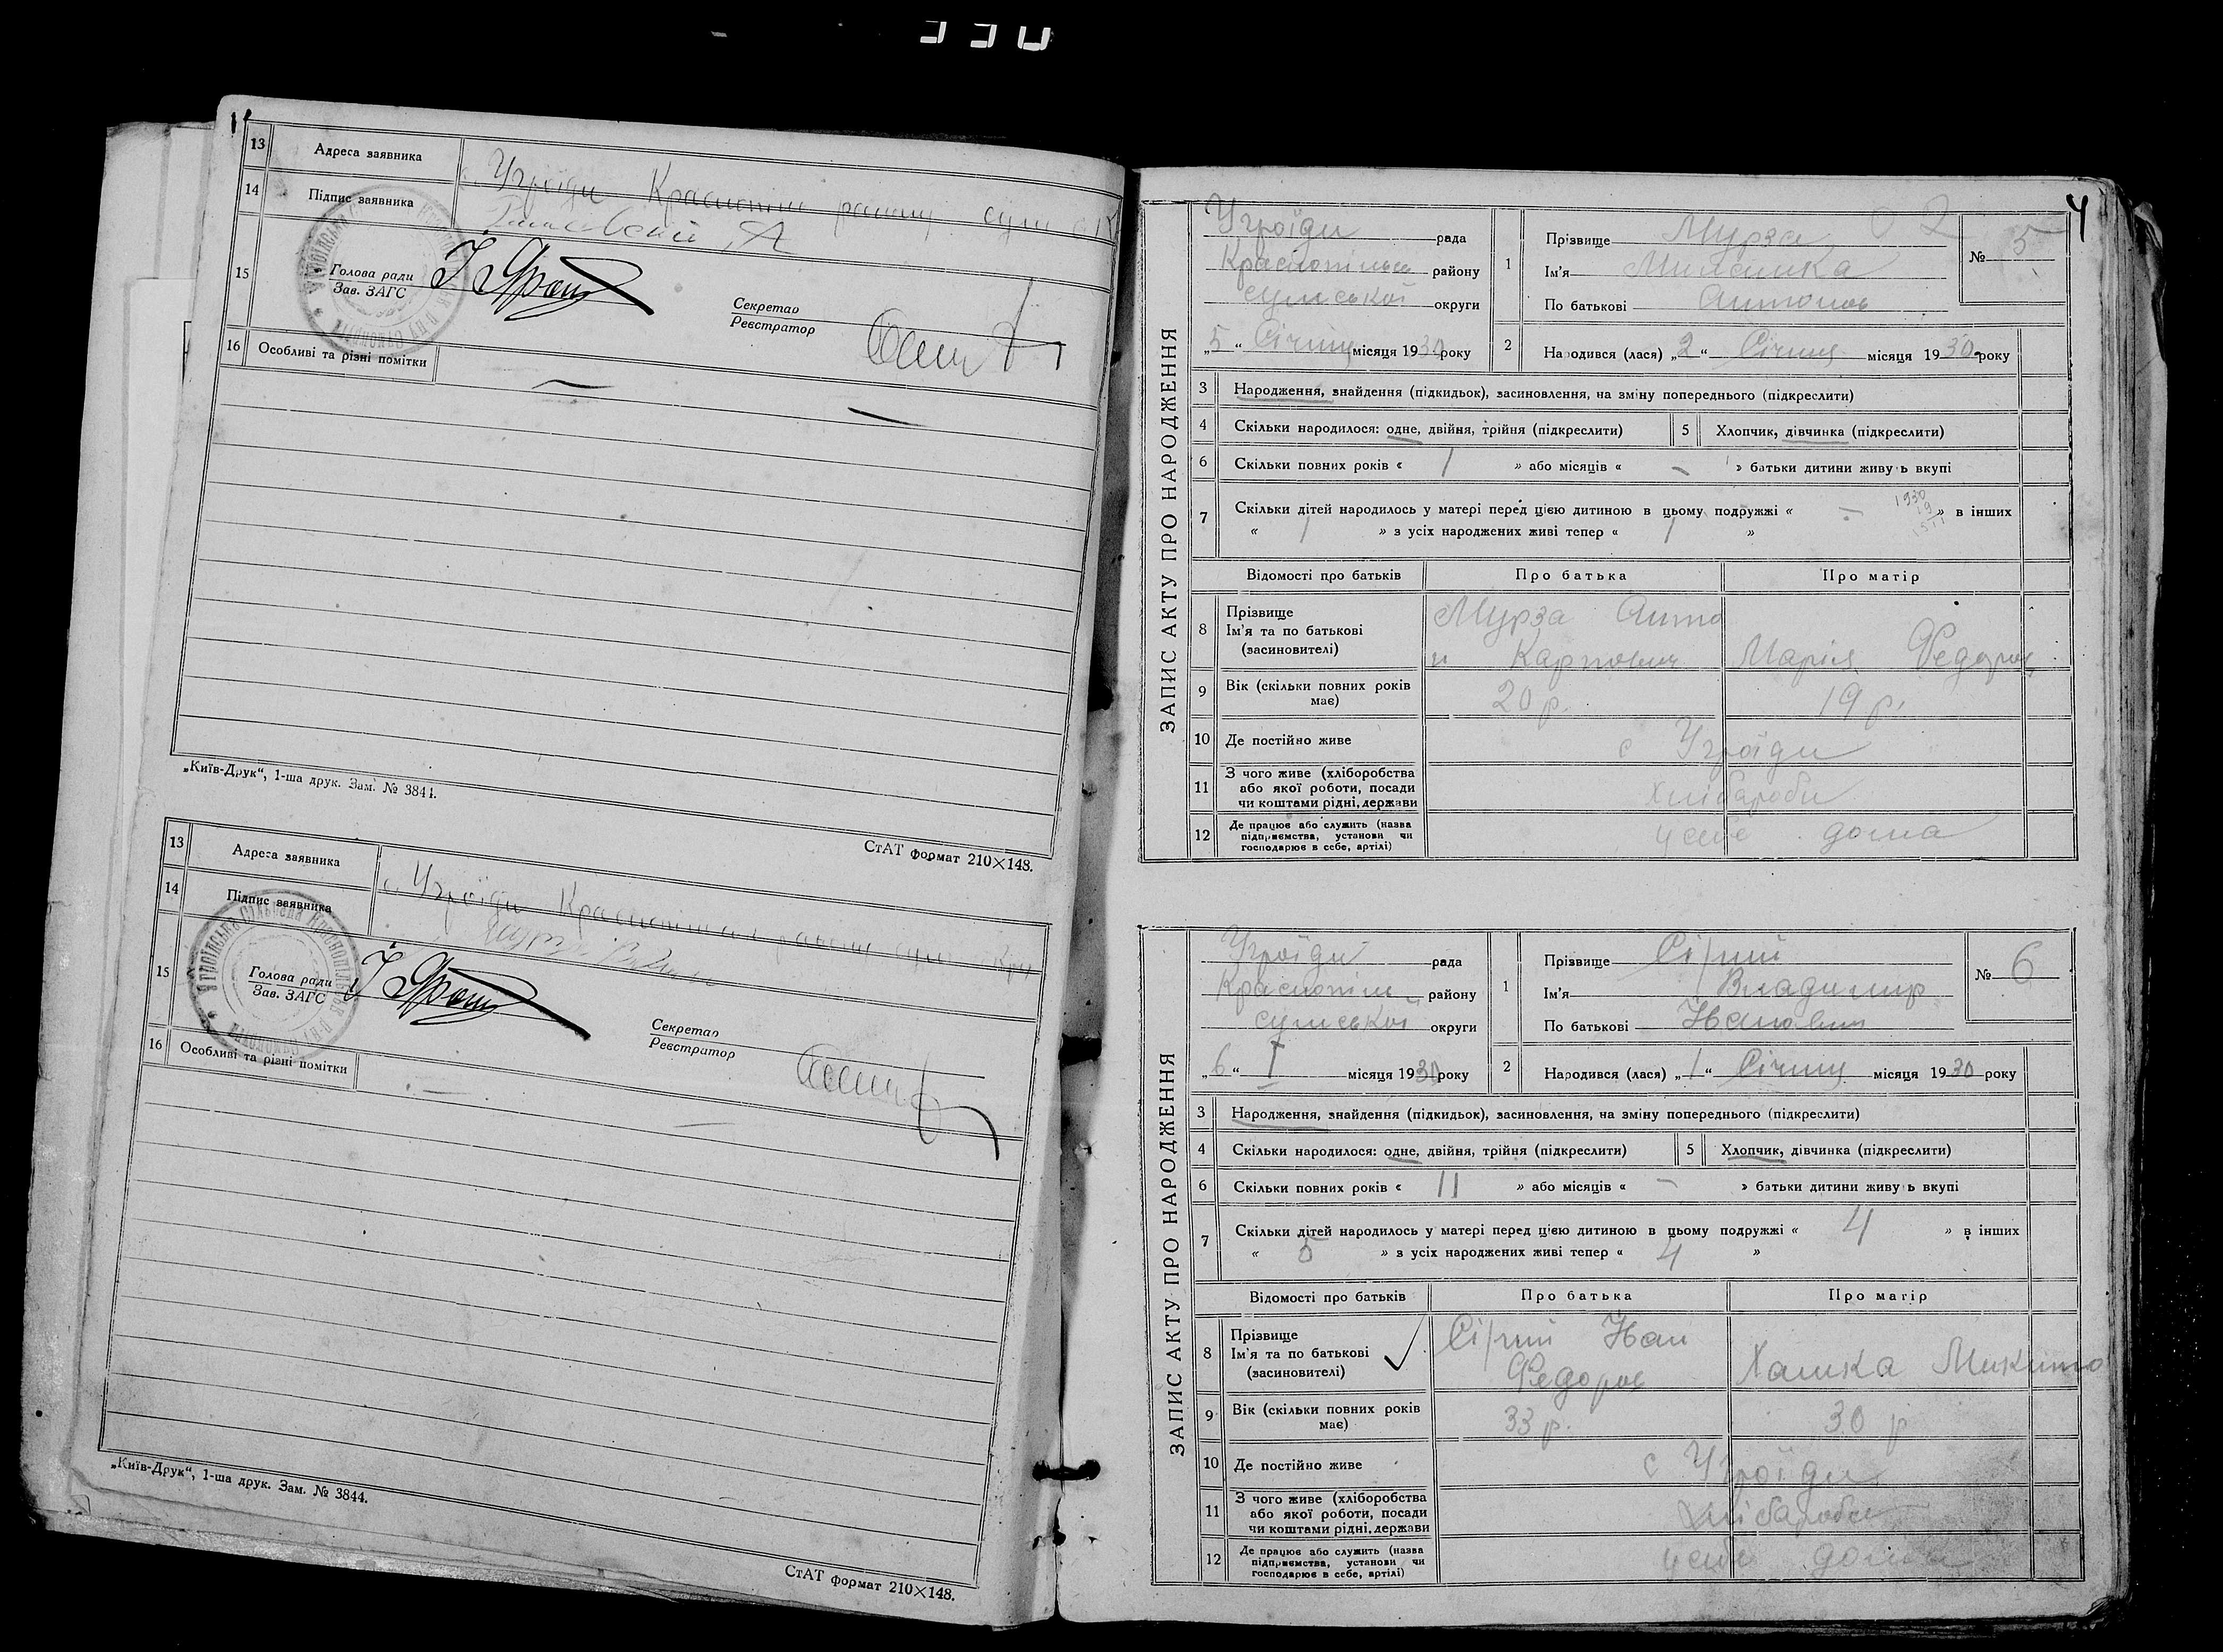 330
13 Адреса заявника с. Угроїди Краснопіл району сум окр
14 Підпис заявника
15 Голова ради
Зав. ЗАГС
Секретар
Реєстратор
16 Особливі та різні помітки —
„Київ-Друк“, 1-ша друк. Зам. № 3844.
СтАТ формат 210×148.
13 Адреса заявника с. Угроїди Краснопільськ району сум окр
14 Підпис заявника
15 Голова ради
Зав. ЗАГС
Секретар
Реєстратор
16 Особливі та різні помітки —
„Київ-Друк“, 1-ша друк. Зам. № 3844.
СтАТ формат 210×148.
4
ЗАПИС АКТУ ПРО НАРОДЖЕННЯ
Угроїди рада
Краснопільск району
сумської округи
„5“ Січня місяця 1930 року
1 Прізвище Мурза
Ім'я
По батькові Антонов
№ 5
2 Народився (лася) „2“ Січня місяця 1930 року
3 Народження, знайдення (підкидьок), засиновлення, на зміну попереднього (підкреслити)
4 Скільки народилося: одне, двійня, трійня (підкреслити) 5 Хлопчик, дівчинка (підкреслити)
6 Скільки повних років « 1 » або місяців « — » батьки дитини живуть вкупі
7 Скільки дітей народилось у матері перед цією дитиною в цьому подружжі « — » в інших
« 1 » з усіх народжених живі тепер « 1 »
1930
19
1911
Відомості про батьків Про батька Про матір
8 Прізвище
Ім'я та по батькові
(засиновителі)
Мурза Анто
н Карпович Марія Федоров
9 Вік (скільки повних років має) 20 р. 19 р.
10 Де постійно живе с Угроїди
11 З чого живе (хліборобства
або якої роботи, посади
чи коштами рідні, держави хлібароби
12 Де працює або служить (назва
підприємства, установи чи
господарює в себе, артілі) у себе дома
ЗАПИС АКТУ ПРО НАРОДЖЕННЯ
Угроїди рада
Краснопіль району
сумської округи
„6“ I місяця 1930 року
1 Прізвище Сірий
Ім'я Владимир
По батькові Іванович
№ 6
2 Народився (лася) „1“ Січня місяця 1930 року
3 Народження, знайдення (підкидьок), засиновлення, на зміну попереднього (підкреслити)
4 Скільки народилося: одне, двійня, трійня (підкреслити) 5 Хлопчик, дівчинка (підкреслити)
6 Скільки повних років « 11 » або місяців « — » батьки дитини живуть вкупі
7 Скільки дітей народилось у матері перед цією дитиною в цьому подружжі « 4 » в інших
« 5 » з усіх народжених живі тепер « 4 »
Відомості про батьків Про батька Про матір
8 Прізвище
Ім'я та по батькові
(засиновителі)
Сірий Іван
Федоров Микито
9 Вік (скільки повних років має) 33 р. 30 р
10 Де постійно живе с Угроїди
11 З чого живе (хліборобства
або якої роботи, посади
чи коштами рідні, держави хлібароби
12 Де працює або служить (назва
підприємства, установи чи
господарює в себе, артілі) у себе дома